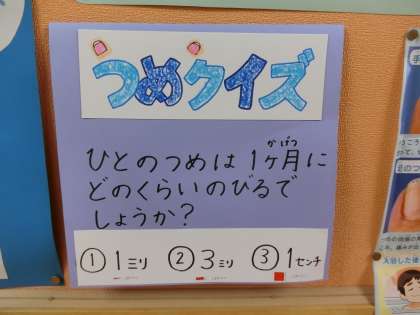 つめクイズ
ひとのつめは1ヶ月に
かげつ
どのくらいのびるで
しょうか?
①1ミリ ②3ミリ ③1センチ
入浴した後